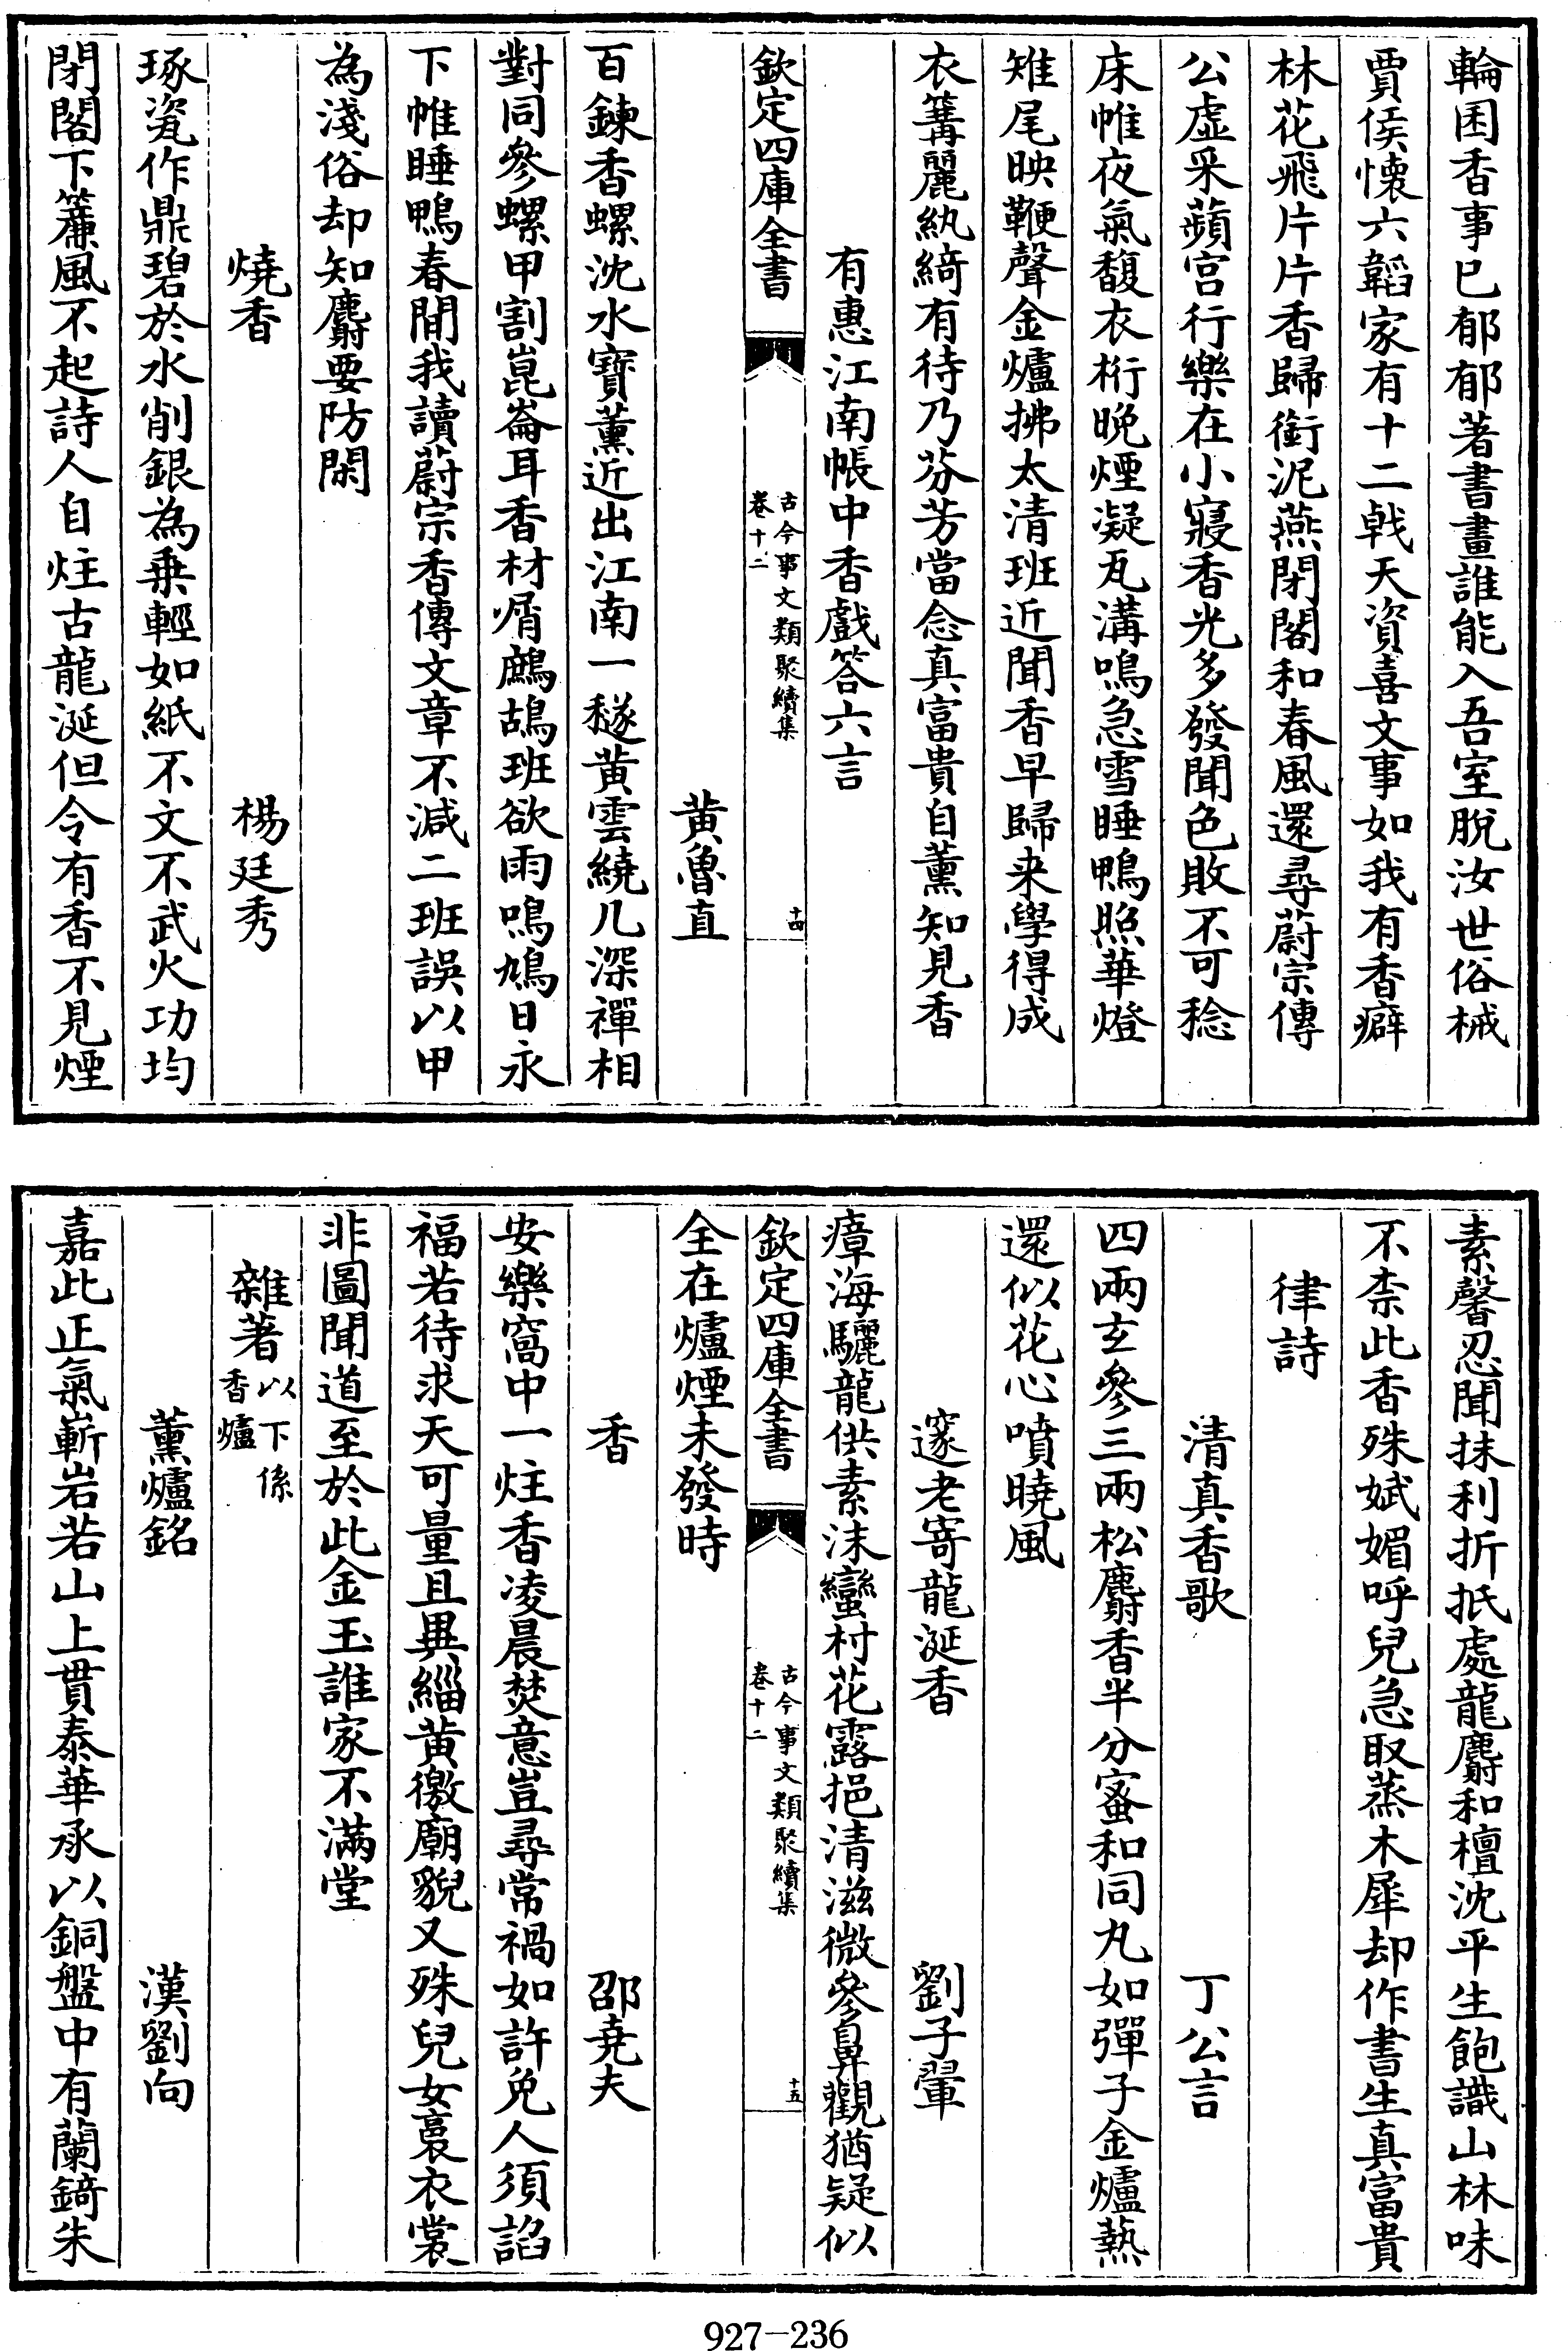 輪囷香事已郁郁著書畫誰能入吾室脫汝世俗械
賈侯懷六韜家有十二戟天資喜文事如我有香癖
林花飛片片香歸銜泥燕閉閣和春風還尋蔚宗傳
公虛采蘋宫行樂在小寢香光多發聞色敗不可稔
床帷夜氣馥衣桁晚煙凝瓦溝鳴急雪睡鴨照華燈
雉尾映鞭聲金爐拂太清班近聞香早歸来學得成
衣篝麗紈綺有待乃芬芳當念真富貴自薰知見香
有惠江南帳中香戲答六言
欽定四庫全書
古今事文類聚續集
卷十二
十四
黄魯直
百鍊香螺沈水寶薰近出江南一穟黄雲繞几深禪相
對同參螺甲割崑崙耳香材屑鷓鴣班欲雨鳴鳩日永
下帷睡鴨春閒我讀蔚宗香傳文章不減二班誤以甲
為淺俗却知麝要防閑
燒香
楊廷秀
琢瓷作鼎碧於水削銀為葉輕如紙不文不武火功均
閉閣下簾風不起詩人自炷古龍涎但令有香不見煙
素馨忍聞抹利折抵處龍麝和檀沈平生飽識山林味
不柰此香殊斌媚呼兒急取蒸木犀却作書生真富貴
律詩
清真香歌
丁公言
四兩玄參三兩松麝香半分蜜和同丸如彈子金爐爇
還似花心噴曉風
邃老寄龍涎香
劉子翬
瘴海驪龍供素沫蠻村花露挹清滋微參鼻觀猶疑似
欽定四庫全書
古今事文類聚續集
卷十二
十五
全在爐煙未發時
香
邵堯夫
安樂窩中一炷香凌晨焚意豈尋常禍如許免人須諂
福若待求天可量且異緇黄徼廟貌又殊兒女裛衣裳
非圖聞道至於此金玉誰家不滿堂
雜著以下係香爐
薰爐銘
漢劉向
嘉此正氣嶄岩若山上貫泰華承以銅盤中有蘭錡朱
927-236